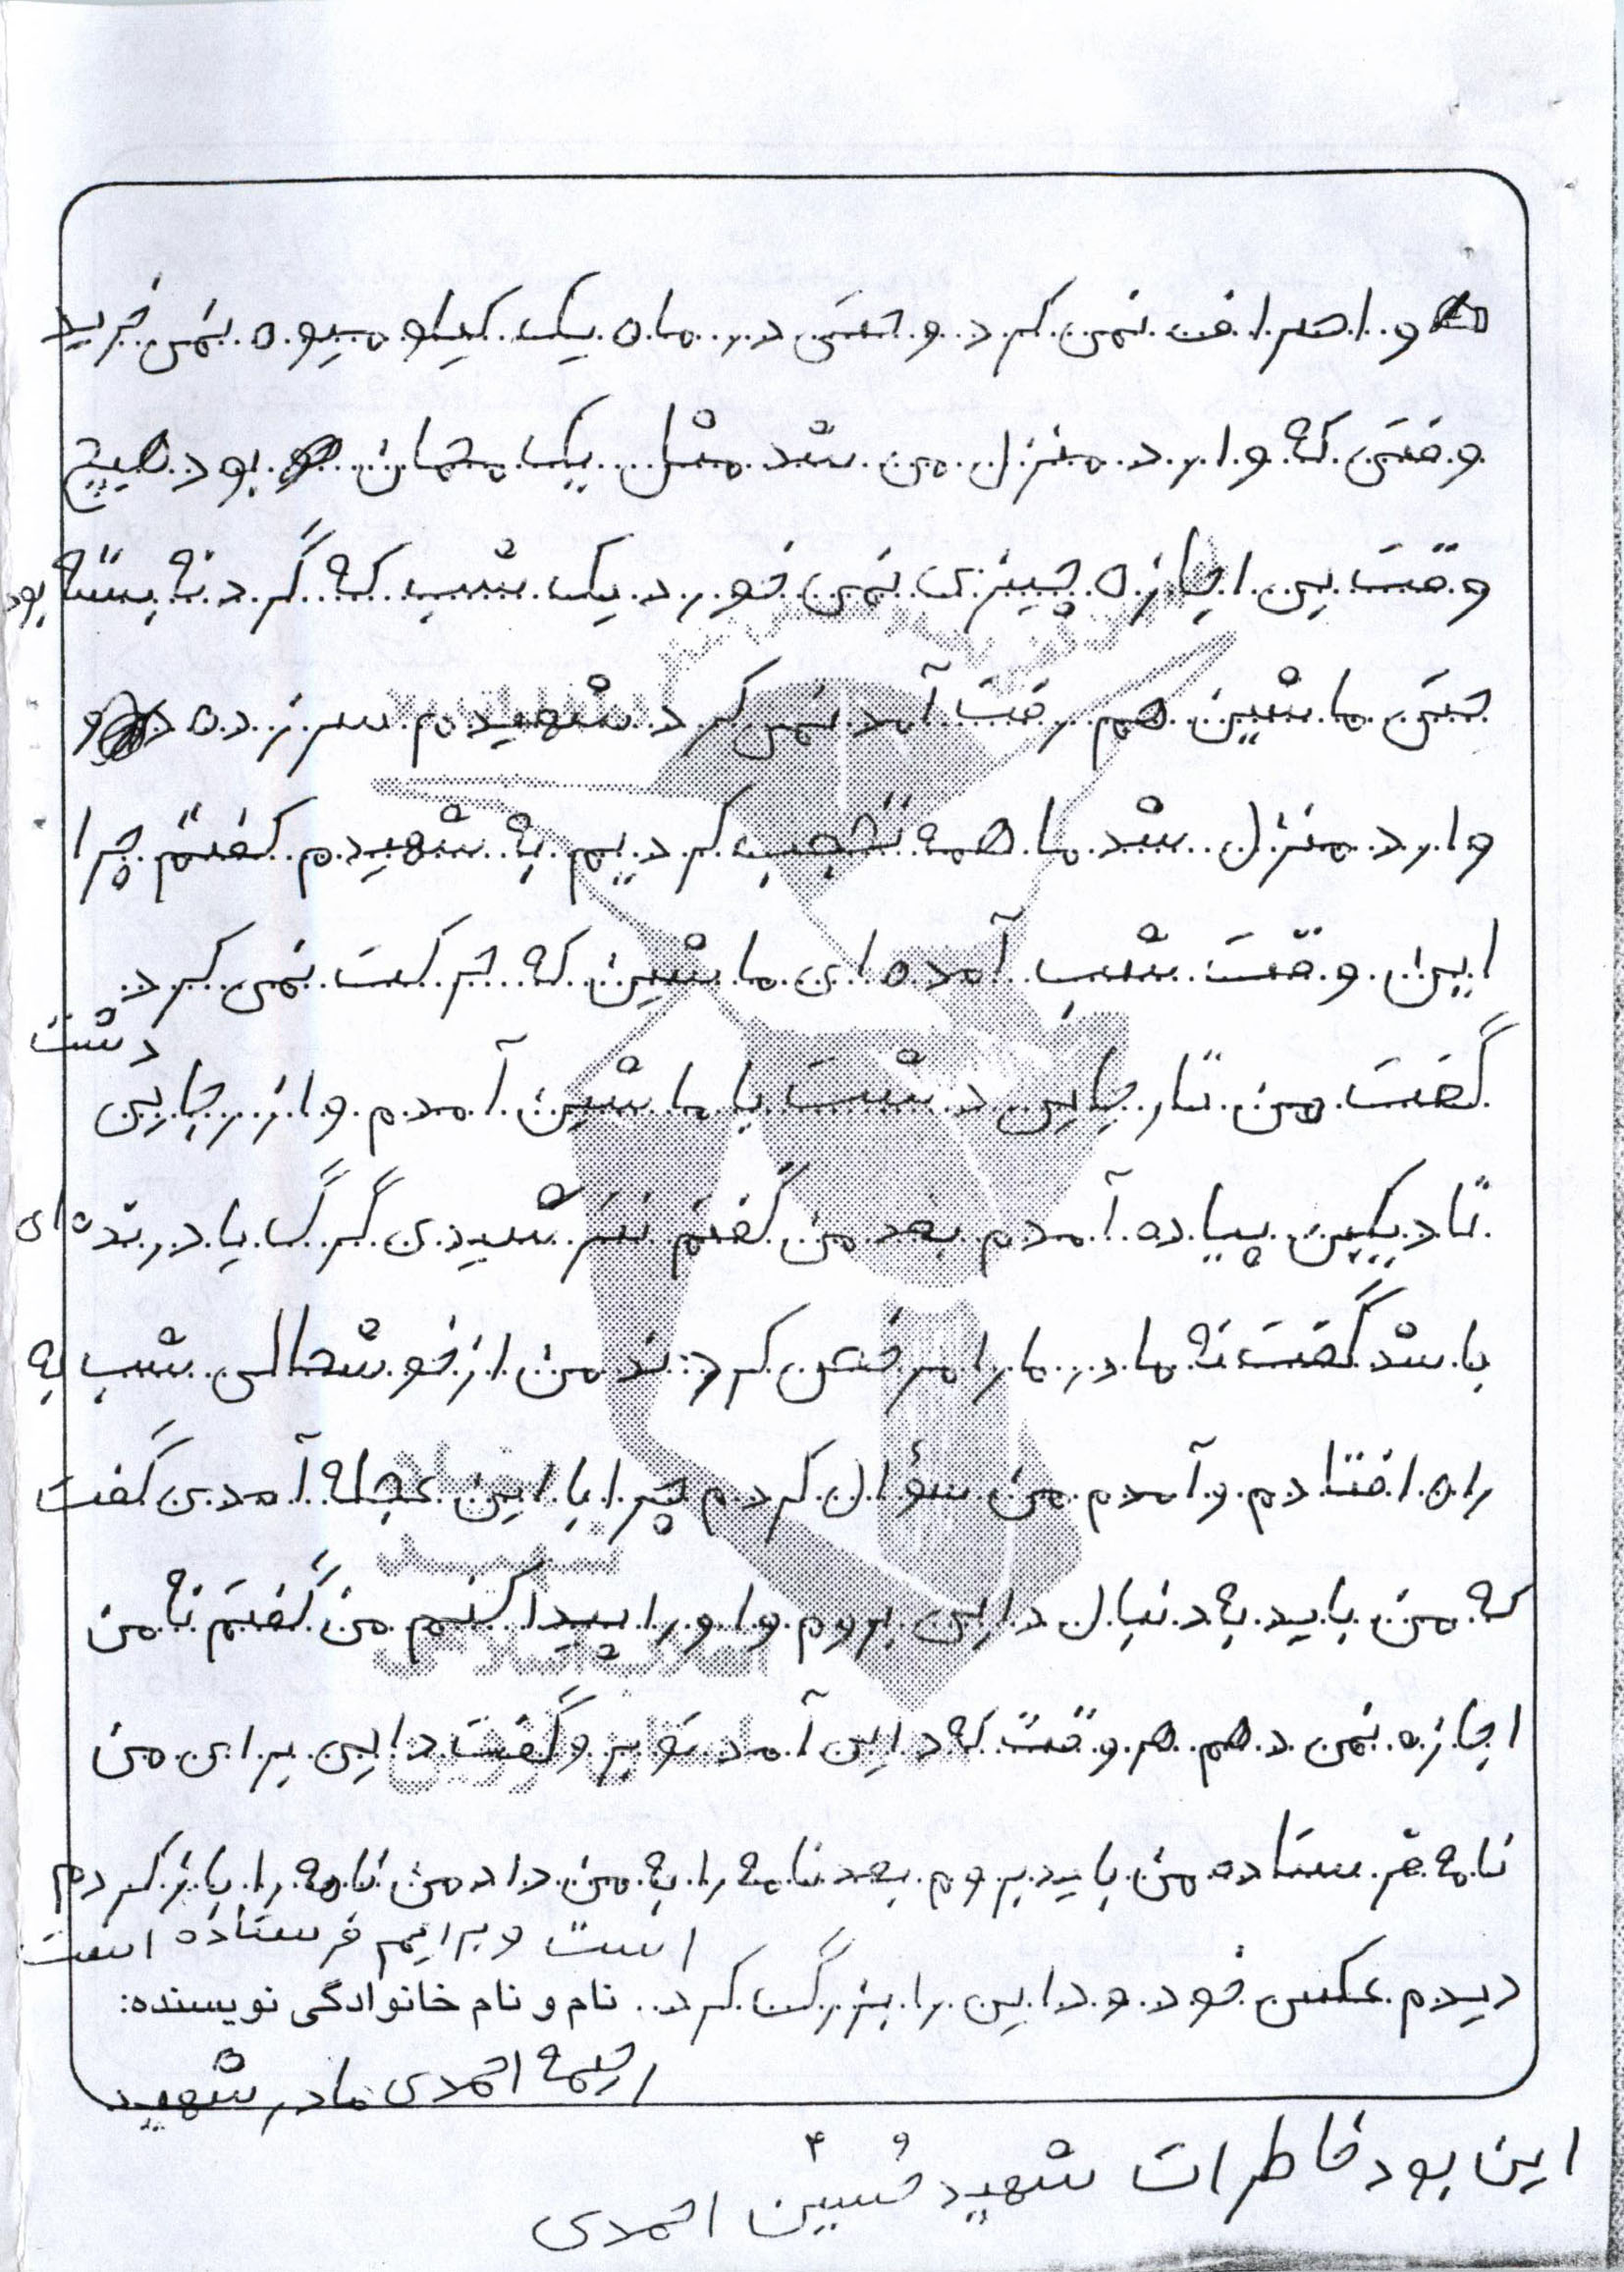 و اصراف نمی کرد و حتی در ماه یک کیلو میوه نمی خرید
وقتی که وارد منزل من شد مثل یک مهمان بود هیچ
وقت بی اجازه چیزی نمی خورد یک شب که گردنه بسته بود
حتی ماشین هم رفت آمد نمی کرد شهیدم سر زده و
وارد منزل شد ما همه تعجب کردیم به شهیدم گفتم چرا
این وقت شب آمده ای ماشین که حرکت نمی کرد
گفت من تا رجایی دشت با ماشین آمدم و از رجایی دشت
تا دیکین پیاده آمدم بعد من گفتم نترشیدی گرگ یا درنده ای
باشد گفت نه مادر ما را مرخص کردند من از خوشحالی شب به
راه افتادم و آمدم من سؤال کردم چرا با این عجله آمدی گفت
که من باید به دنبال دایی بروم و او را پیدا کنم من گفتم نه من
اجازه نمی دهم هر وقت که دایی آمد تو برو گفت دایی برای من
نامه فرستاده من باید بروم بعد نامه را به من داد من نامه را باز کردم
دیدم عکس خود و دایی را بزرگ کرد است و برایم فرستاده است
نام و نام خانوادگی نویسنده:
احمدی مادر شهید
این بود خاطرات شهید حسین احمدی
۴